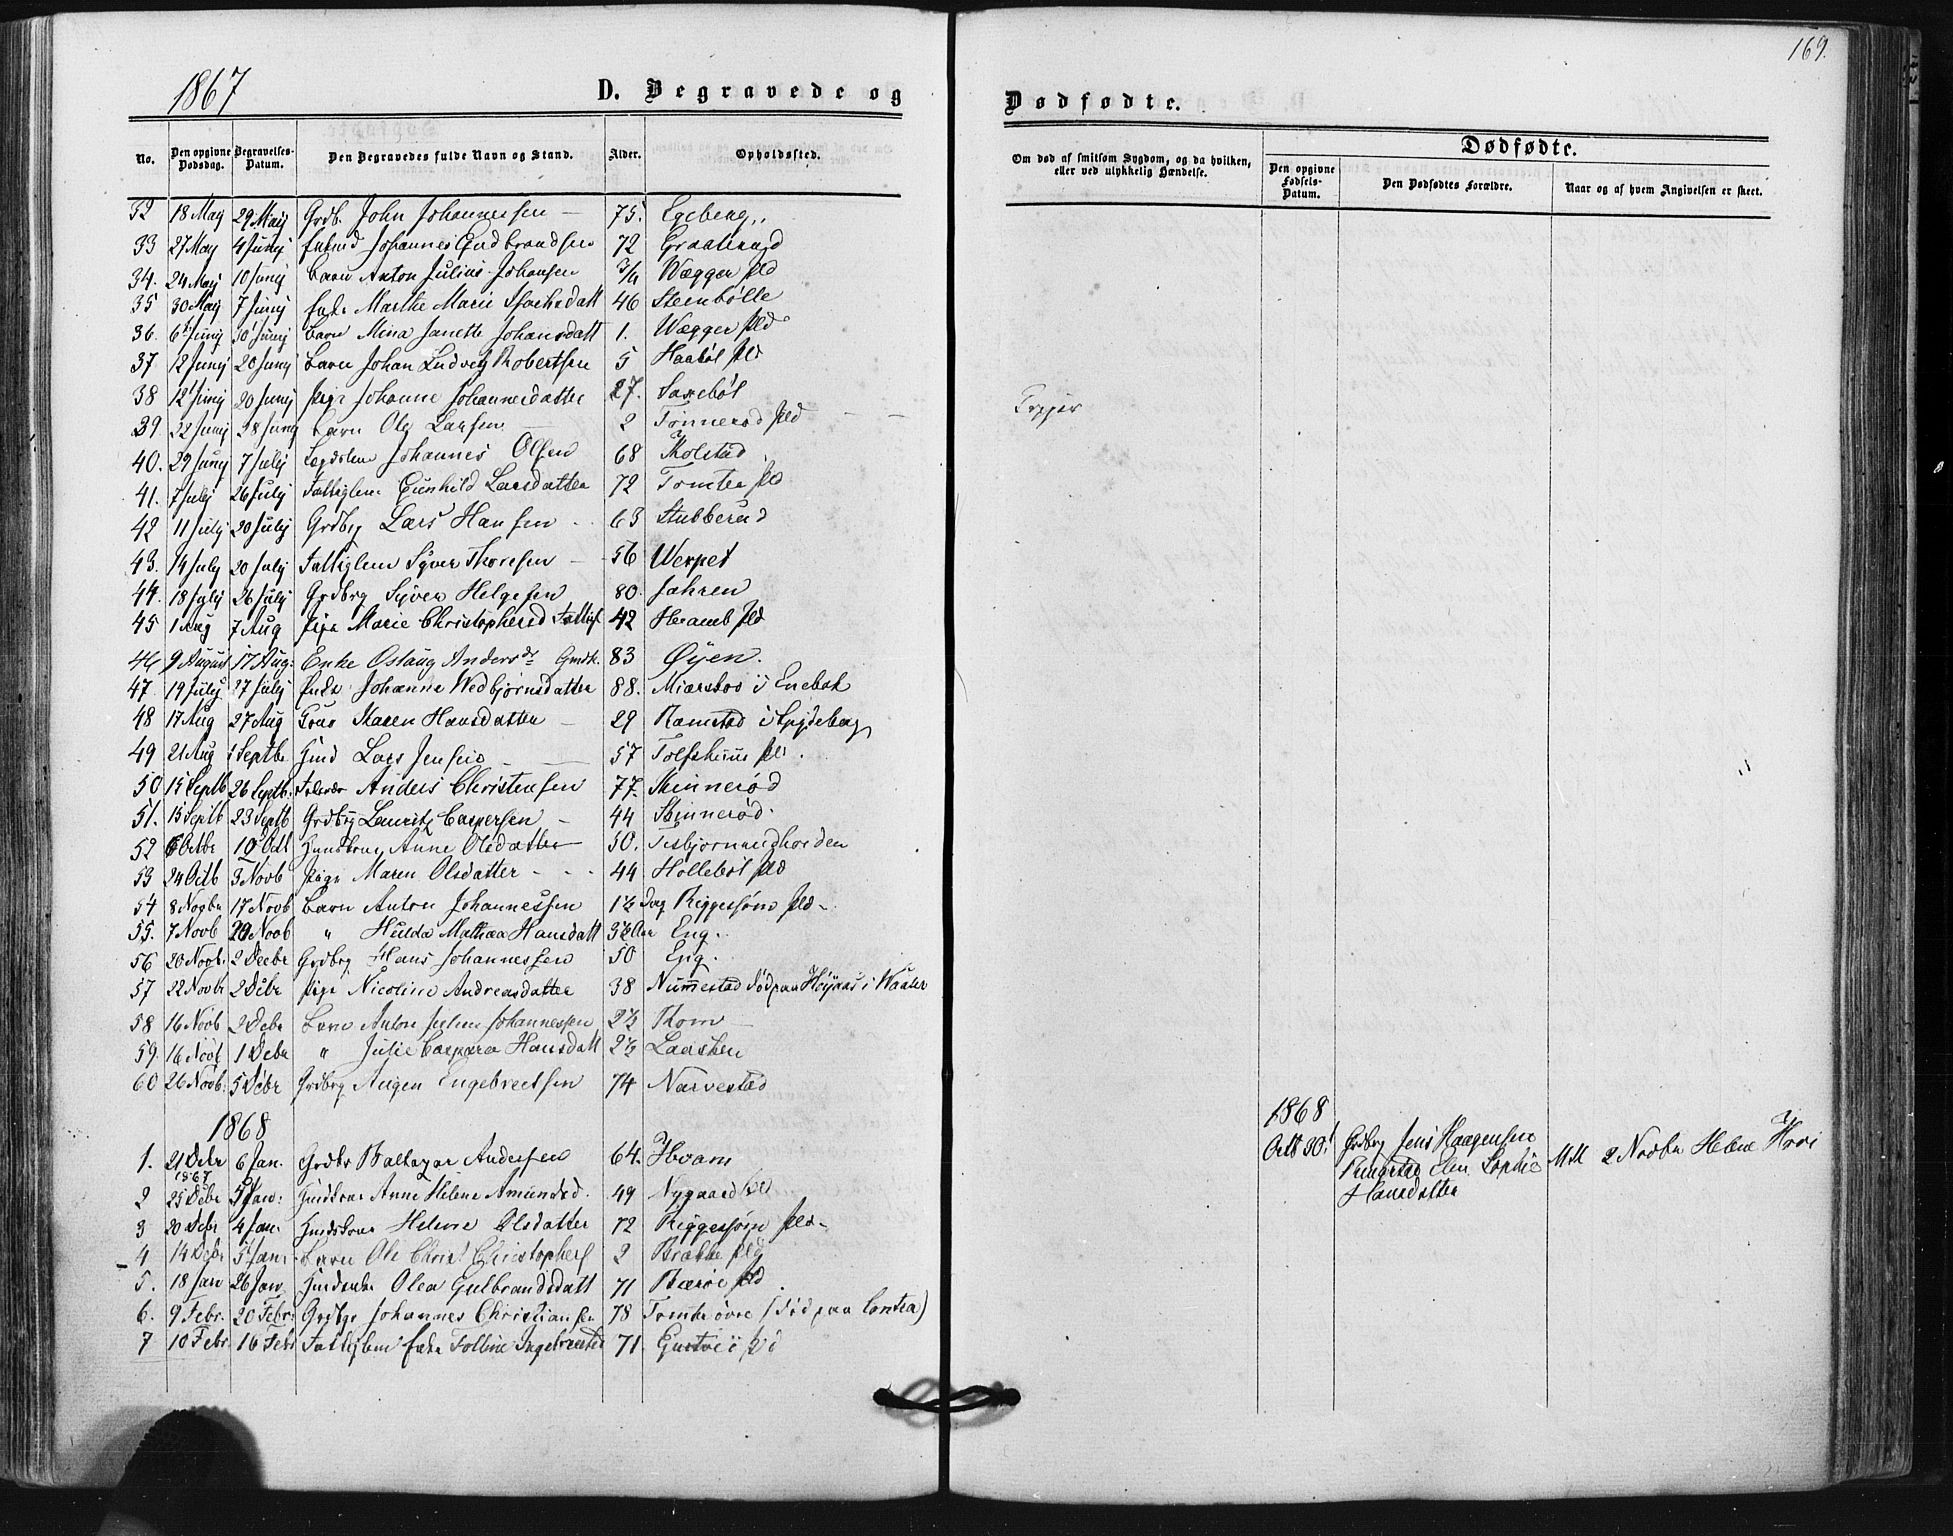 169.
1867
D. Begravede og
Dødfødte.
No.
Den opgivne Dødsdag.
Begravelses-Datum.
Den Begravedes fulde Navn og Stand.
Alder.
Opholdssted.
Om død af smitsom Sygdom, og da hvilken, eller ved ulykkelig Hændelse.
Dødfødte.
Den opgivne Fødsels-Datum.
Den Dødfødtes Forældre.
Naar og af hvem Angivelsen er skeet.
32 18 May 29 May Grdb. John Johannessen 75. Egeberg
33 27 May 4 Junij Johannes Gudbrandsen 72
34. 24 Maj 10 Junij Barn Anton Julius Johansen 3/4 Wægger Pld
35 30 May 7 Junij Marthe Marie 46 Steenbølle
36. 6 Junij 10 Junij Barn Mina Janette Johansdatt 1. Wægger Pld
37 12 Junij 20 Junij Barn Johan Ludvig Robertsen 5 Haabøl Pld
38 12 Junij 20 Junij Pige Johanne Johannesdatter 27. Saxebøl
39 22 Junij 28 Junij Barn Ole Larsen 2 Tonnerød Pld
40. 29 Junij 7 Julij Johannes Olsen 68 Tholstad
41. 7 Julij 26 Julij Fattiglem Gunhild Larsdatter 72 Tomter Pld
42 11 Julij 20 Julij Grdbrg Lars Hansen 63 Stubberud
43. 14 July 20 Julij Fattiglem Syver Thoresen 56 Werpet
44. 18 July 26 Julij Grdbrg Syver Helgesen 80. Jahren
45 1 Aug 7 Aug Pige Marie Christophersd Fattigl 42 Heramb Pld
46 9 August 17 Aug: Enke Oslaug Andersdr Gmdk. 83 Øyen.
47. 19 Julij 27 Julij Johanne Wedbjørnsdatter 88. i Enebak
48 17 Aug 27 Aug Karen Hansdatter 29 Ramstad i Spydeberg
49 21 Aug 1 Septbr Hmd Lars Jensen 57 Tolfshuus Pld.
50 15 Septb 26 Septb. Anders Christensen 77. Skinnerød
51. 15 Septb 23 Septb Grdbrg Lauritz Caspersen 44 Skinnerød.
52 6 Octbr 10 Oct Anne Olsdatter 50.
53 24 Octb 3 Novb Pige Maren Olsdatter 44 Hollebøl Pld
54 8 Novbr 17 Novb Barn Anton Johannessen 1½ Dag Riggesjøm Pld
55. 7 Novb 20 Novb " Hulda Mathea Hansdatt 3½ Aar Eng.
56 20 Novb. 2 Decbr Grdbrg Hans Johannessen 50 Eng.
57 22 Novb 2 Debr Pige Nicoline Andreasdatter 38 Nummestad død paa Høyaas i Waaler
58 16 Novb 2 Debr Barn Anton Johannessen 2½ Thom
59. 16 Novb 1 Debr " Julie Caspara Hansdatt 2½ Laasken
60 26 Novb. 5 Debr Grdbrg Augen Engebretsen 74 Narvestad
1868
1. 21 Debr 1867 6 Jan. Grdbr Baltazar Andersen 64. Hvam
2 25 Debr 5 Jan: Hmdkone Anne Helene Amundsd. 49 Nygaard Pld
3 20 Debr 4 Jan. Hmdskone Helene Olsdatter 72 Riggesjøm Pld
4 14 Debr 5 Jan. Barn Ole Christ Christophers 2 Brække Pld
5. 18 Jan 26 Jan. Olea Gulbrandsdatt 71 Pld
6. 9 Febr. 20 Febr: Grdbgr Johannes Christiansen 78 Tomter øvre (død paa Tomter)
7 10 Febr. 16 Febr Fattiglem Enke 71. Pld
1868
Octb 30. Grdbrg Jens Haagensen Elen Sophie Hansdatter
2 Novbr Helene Hovi